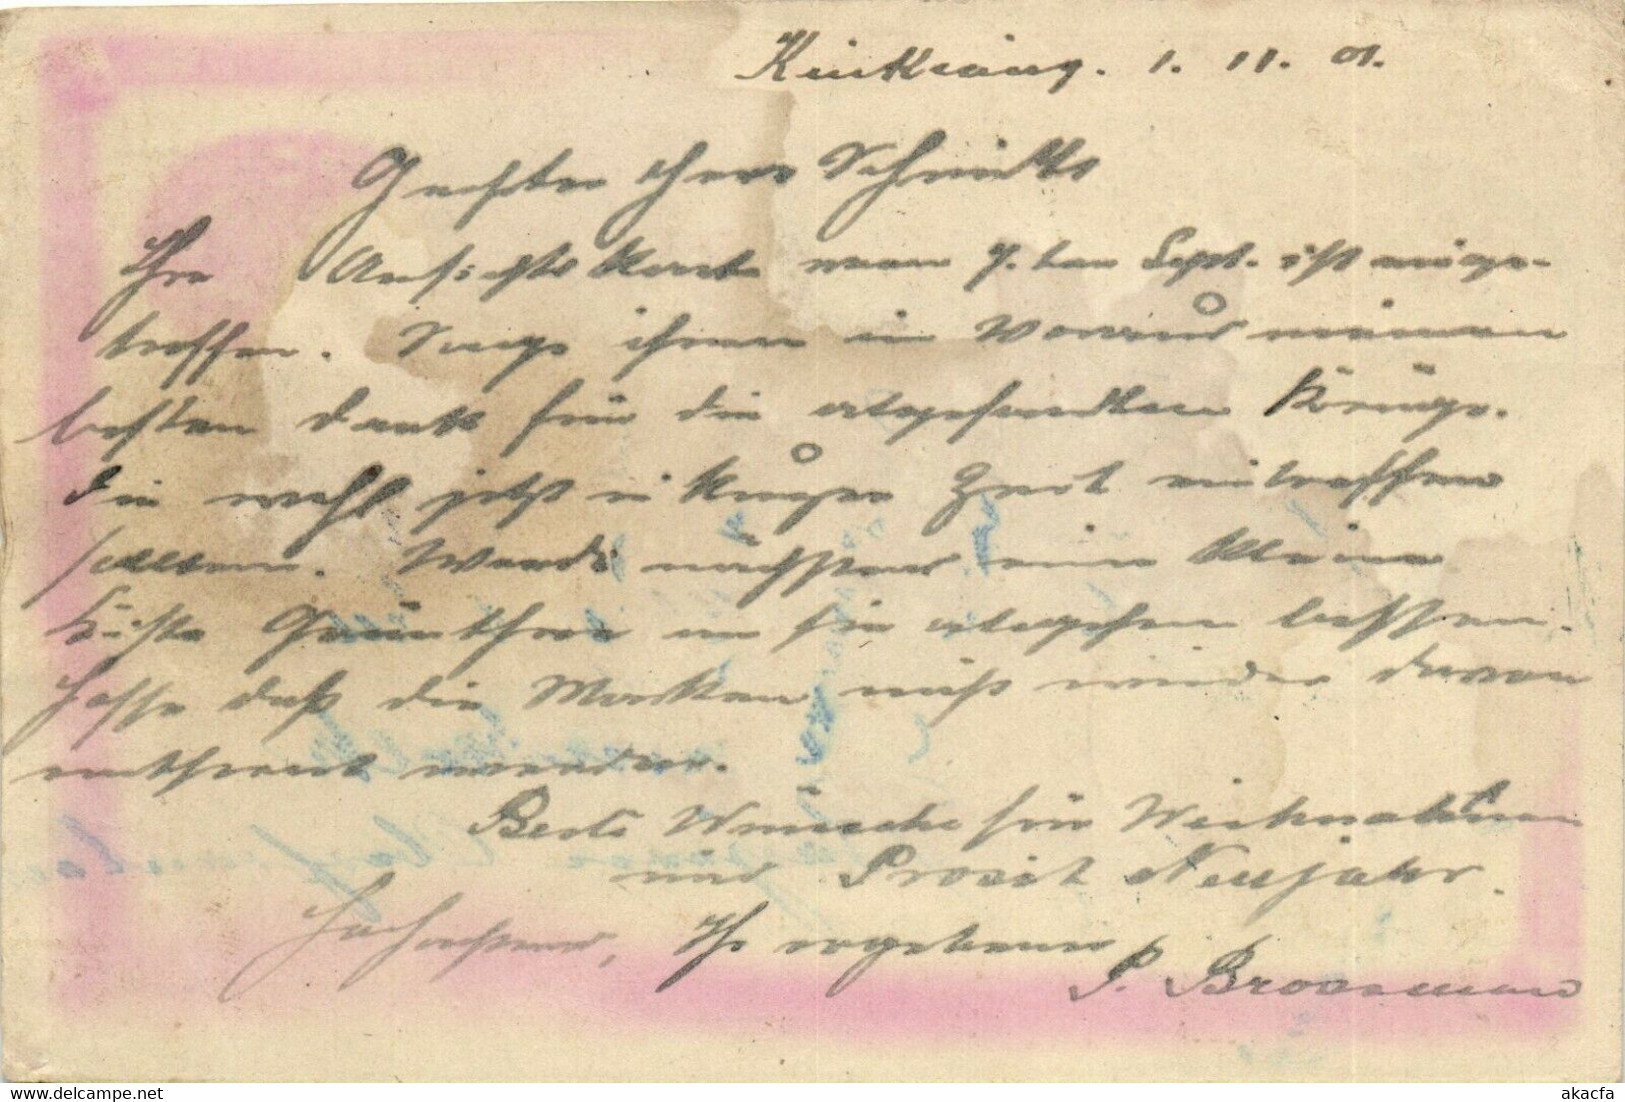 Kiukiang. 1. 11. 01.
Geehrter Herr Schmidt
Ihre Ansichtskarte vom 7. ten Sept. ist einge-
troffen. Sage ihnen im Voraus meinen
besten Dank für die abgesandten
die wohl jetzt in kurzer Zeit eintreffen
sollten. Werde nächstens eine kleine
Kiste an sie abgehen lassen.
hoffe daß die Marken nicht wieder davon
entfernt werden.
Beste Wünsche für Weihnachten
und Prosit Neujahr.
Ihr ergebener
P.
akacfa